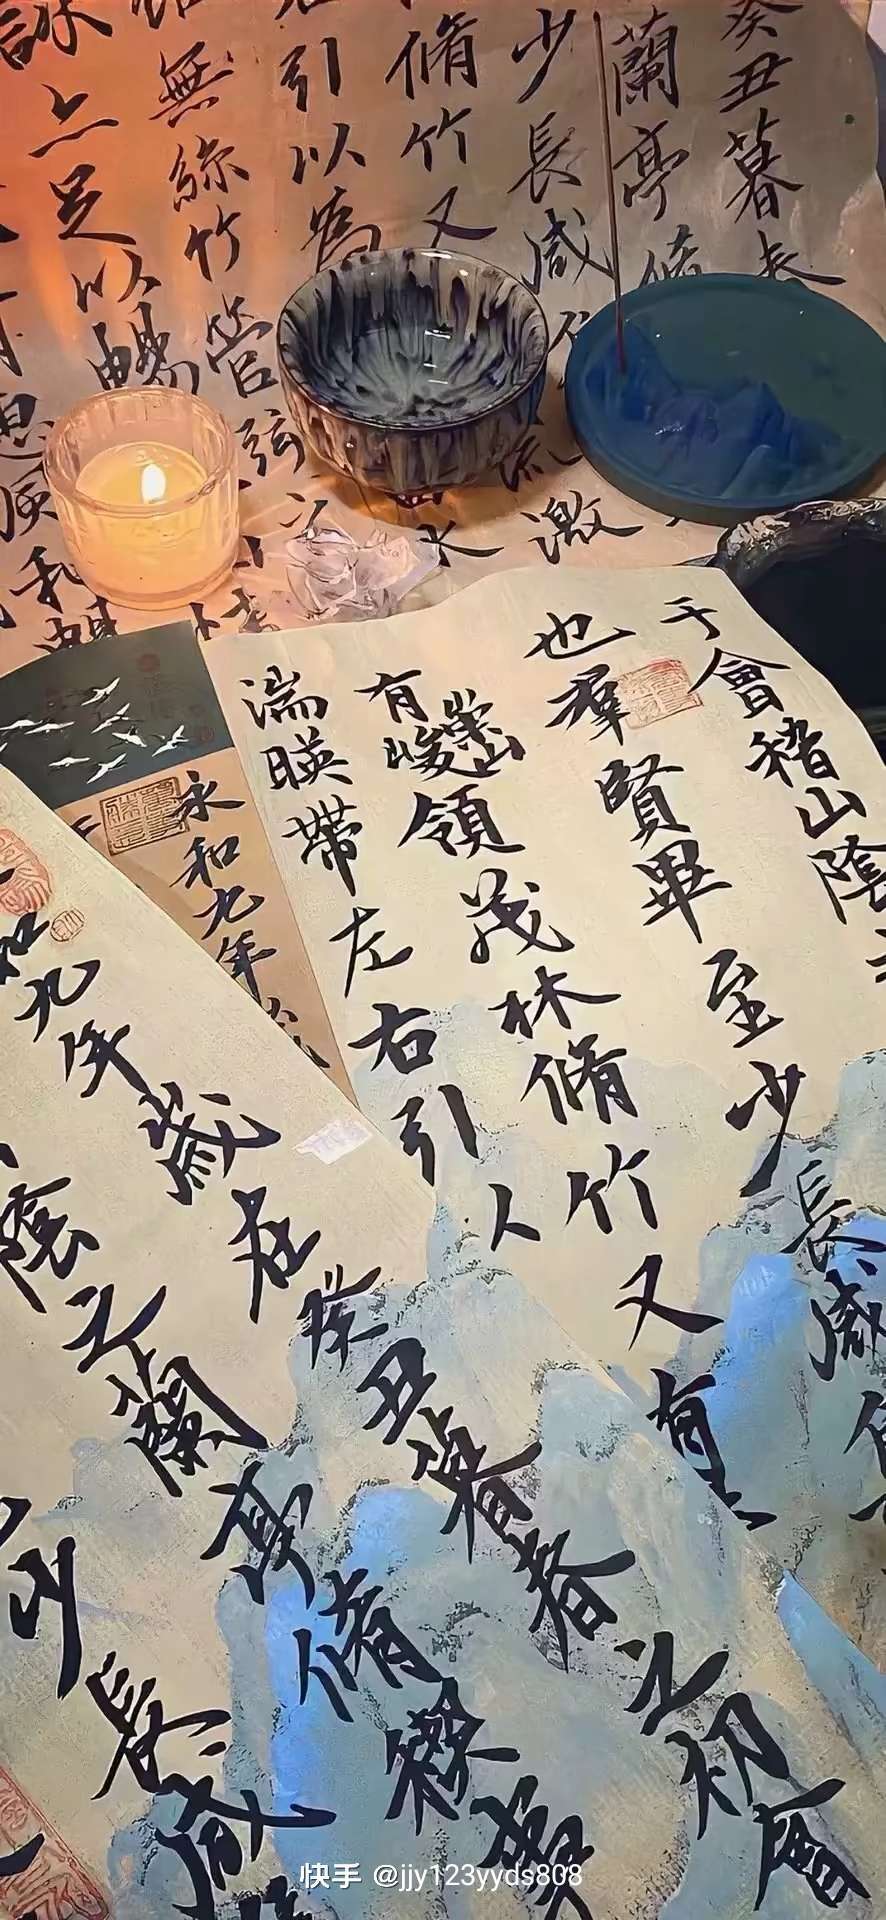 癸丑暮春
蘭亭脩
少長咸
激
脩竹又
引以為
無絲竹管弦之
詠亦足以暢
惠風和暢
于會稽山陰之
也羣賢畢至少長咸集
有崇山峻領茂林脩竹又有
湍暎帶左右引
人
永和九年歲
和九年歲在癸丑暮春之初會
陰之蘭亭脩禊事
少長咸
快手 @jjy123yyds808